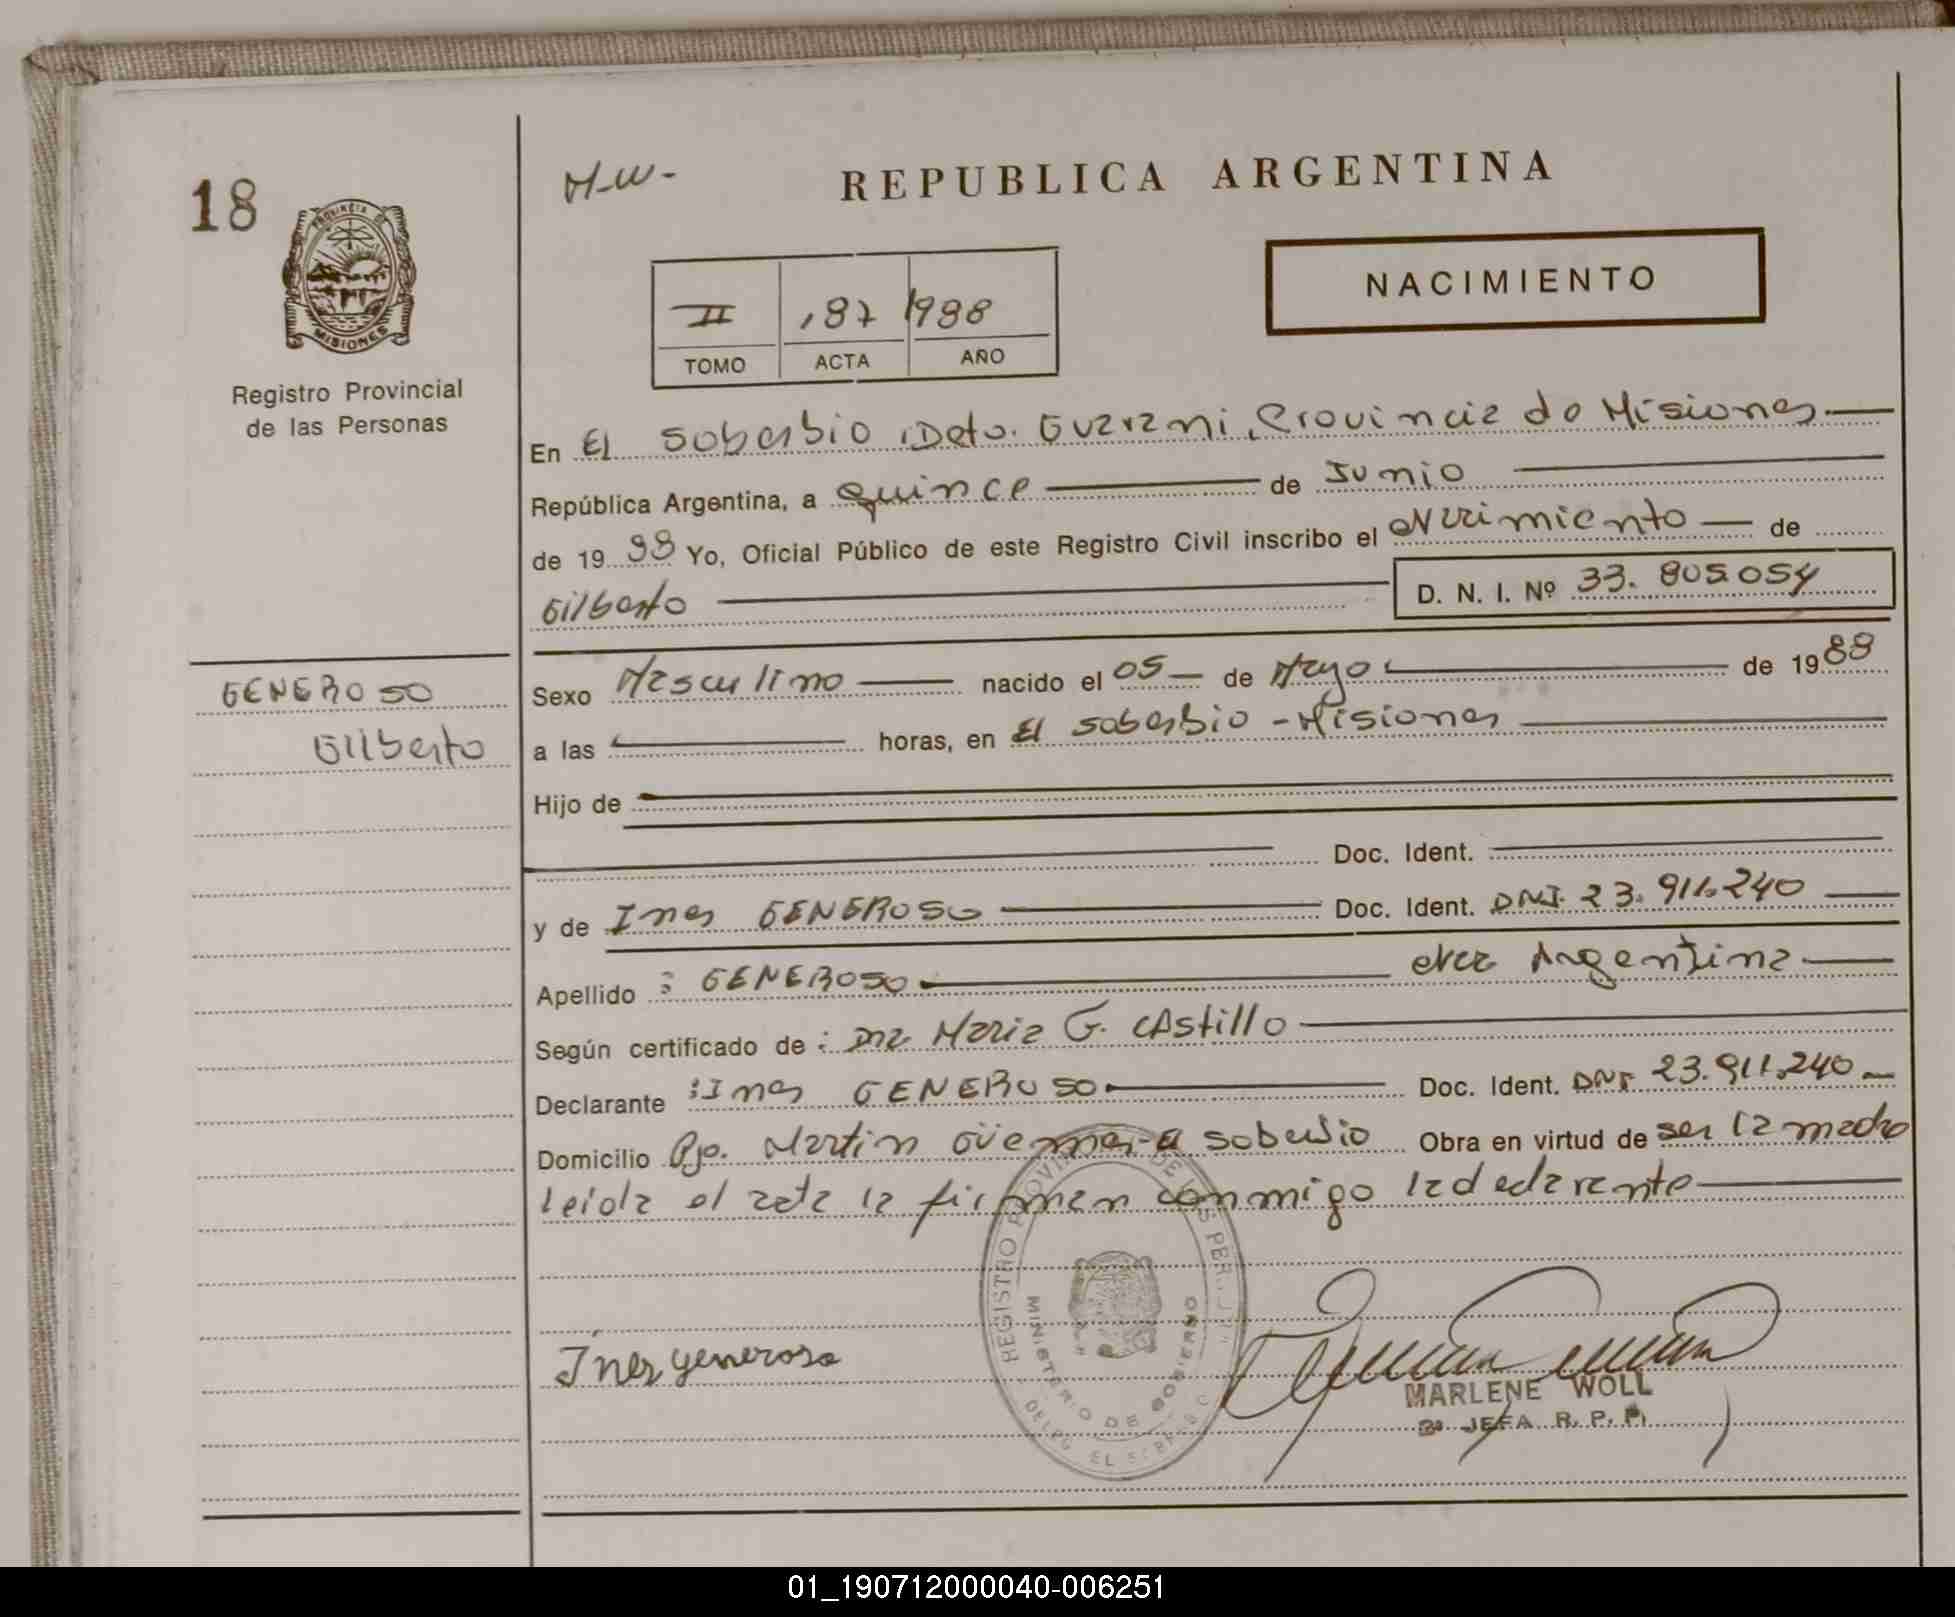 18
M-W-
REPUBLICA ARGENTINA
PROVINCIA DE
MISIONES
Registro Provincial
de las Personas
II 187 1988
TOMO ACTA AÑO
NACIMIENTO
En El Soberbio, Dcto. Guarani, Provincia de Misiones
República Argentina, a quince de Junio
de 19 88 Yo, Oficial Público de este Registro Civil inscribo el Nacimiento de
Gilberto D. N. I. Nº 33.805.054
GENEROSO
Gilberto
Sexo Masculino nacido el 05 de Mayo de 1988
a las horas, en El Soberbio - Misiones
Hijo de
Doc. Ident.
y de Ines GENEROSO Doc. Ident. DNI. 23.911.240
Apellido : GENEROSO Nac Argentina
Según certificado de : Dra Maria G. CAstillo
Declarante : Ines GENEROSO Doc. Ident. DNI 23.911.240
Domicilio Pje. Martin Güemes - El Soberbio Obra en virtud de ser la madre
leida el acta la firman conmigo la declarante
REGISTRO PROVINCIAL DE LAS PERSONAS
MINISTERIO DE GOBIERNO
DELEG. EL SOBERBIO
Ines generoso
MARLENE WOLL
2ª JEFA R. P. P.
01_190712000040-006251